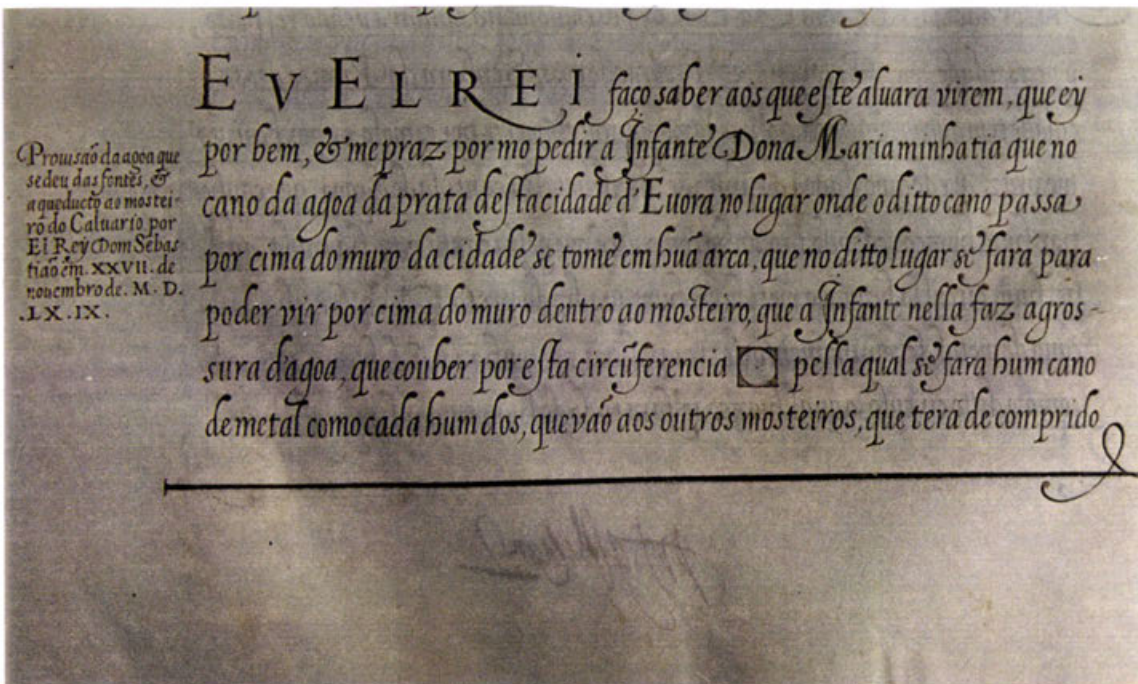 Prouisaõ da agoa que
se deu das fontes, &
aqueducto ao mostei-
ro do Caluario por
El Rey Dom Sebas
tiaõ em. XXVII. de
nouembro de. M. D.
.LX. IX.
EV ELREI faço saber aos que este aluara virem, que ey
por bem, & me praz por mo pedir a Infante Dona Maria minha tia que no
cano da agoa da prata desta cidade d'Euora no lugar onde o ditto cano passa
por cima do muro da cidade se tome em huã arca, que no ditto lugar se fará para
poder vir por cima do muro dentro ao mosteiro, que a Infante nella faz a gros-
sura d'agoa, que couber por esta circũferencia pella qual se fara hum cano
de metal como cada hum dos, que vaõ aos outros mosteiros, que tera de comprido